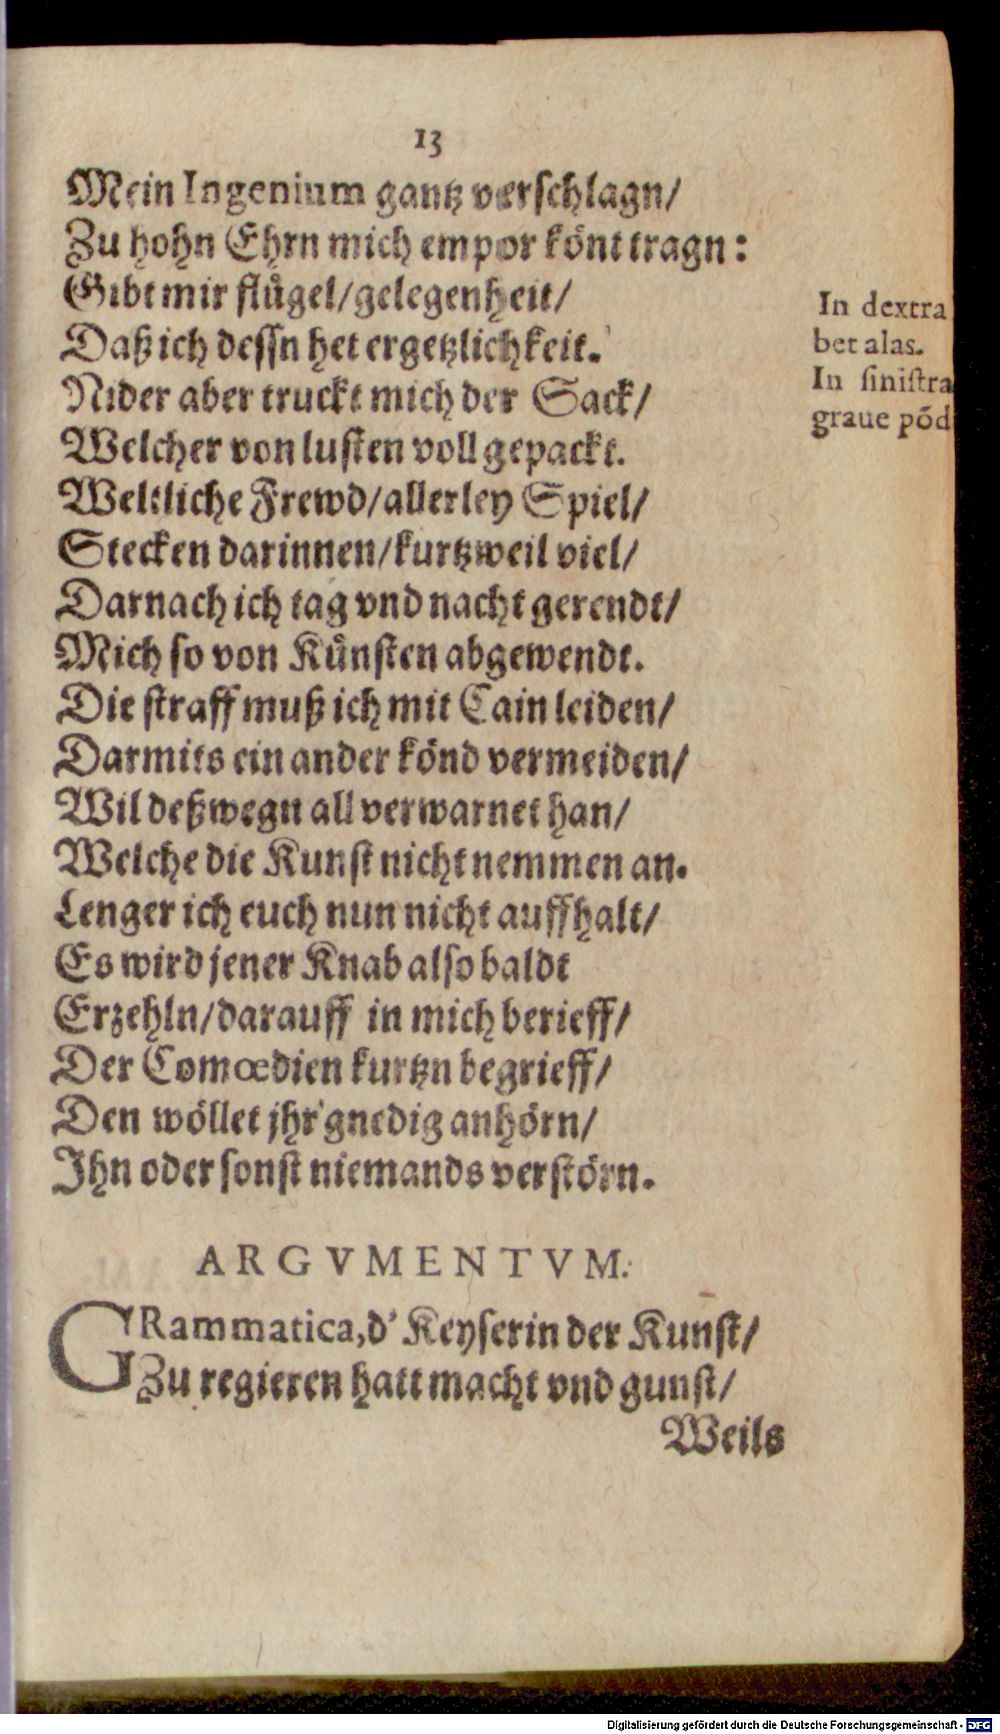 13
Mein Ingenium gantz verschlagn/
Zu hohn Ehrn mich empor könt tragn:
Gibt mir flügel/gelegenheit/
Daß ich dessn het ergetzlichkeit.
Nider aber truckt mich der Sack/
Welcher von lusten voll gepackt.
Weltliche Frewd/allerley Spiel/
Stecken darinnen/kurtzweil viel/
Darnach ich tag vnd nacht gerendt/
Mich so von Künsten abgewendt.
Die straff muß ich mit Cain leiden/
Darmits ein ander könd vermeiden/
Wil deßwegn all verwarnet han/
Welche die Kunst nicht nemmen an.
Lenger ich euch nun nicht auffhalt/
Es wird jener Knab also baldt
Erzehln/darauff in mich berieff/
Der Comœdien kurtzn begrieff/
Den wöllet jhr gnedig anhörn/
Ihn oder sonst niemands verstörn.
In dextra
bet alas.
In sinistra
graue põd
ARGVMENTVM.
GRammatica,d' Keyserin der Kunst/
Zu regieren hatt macht vnd gunst/
Weils
Digitalisierung gefördert durch die Deutsche Forschungsgemeinschaft - DFG